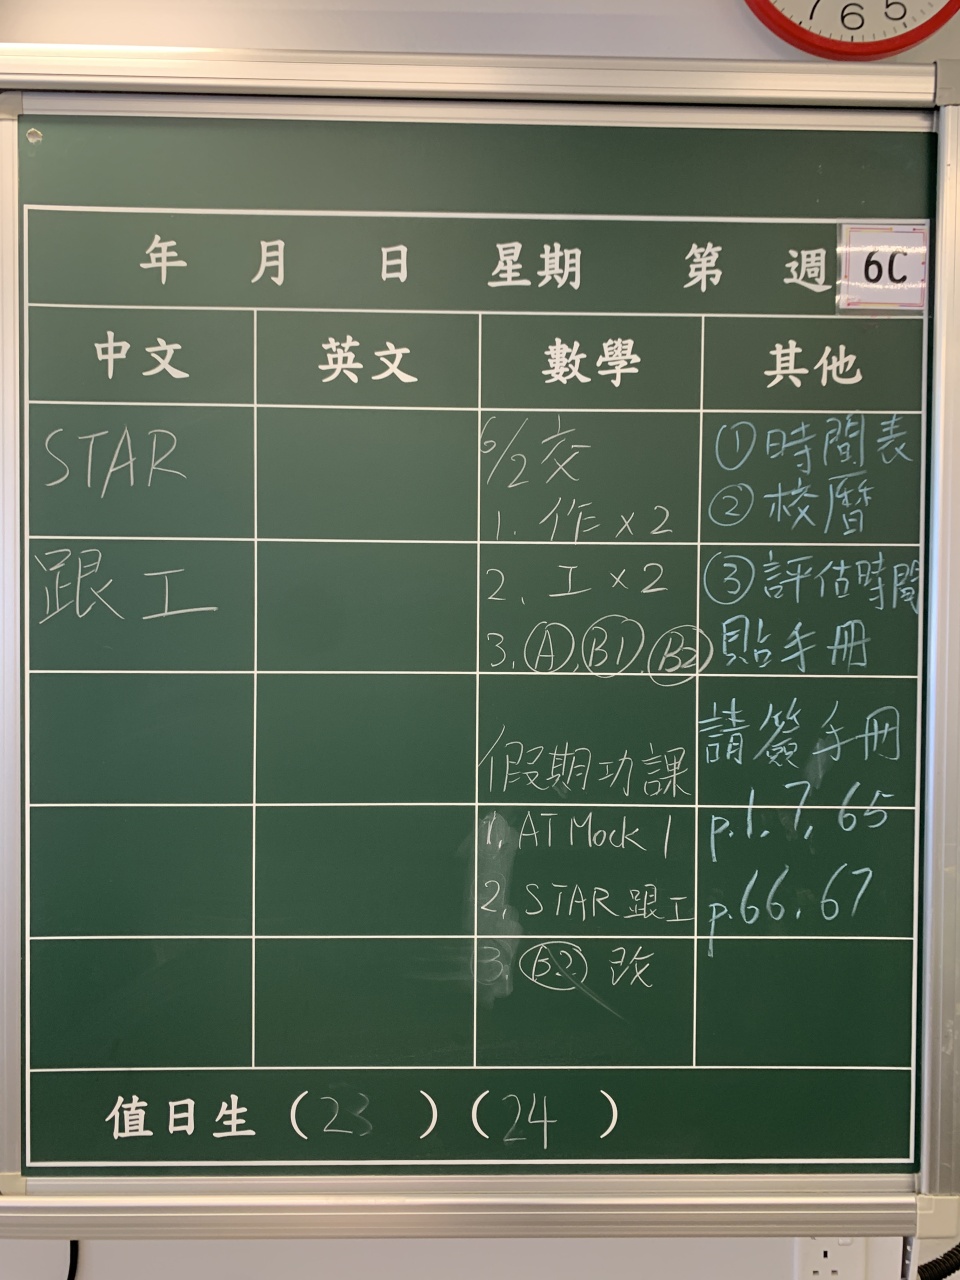 7 6 5
年 月 日 星期 第 週 6C
中文 英文 數學 其他
STAR
跟工
6/2 交
1. 作 x 2
2. 工 x 2
3. Ⓐ, (B1), (B2)
假期功課
1. AT Mock 1
2. STAR 跟工
3. (B2) 改
①時間表
②校曆
③評估時間
貼手冊
請簽手冊
p.1, 7, 65
p.66, 67
值日生 (23) (24)